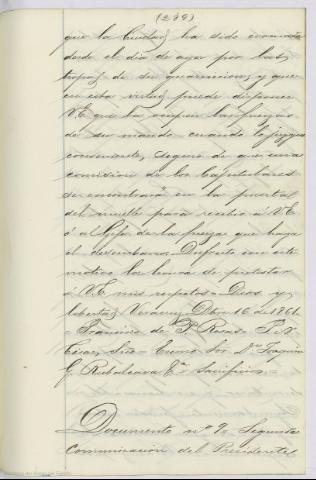 (299)
que la Ciudad ha sido evacuada
desde el dia de ayer por las
tropas de su guarnicion, y que
en esta virtud puede disponer
V.E. que la ocupen las fuerzas
de su mando cuando lo juzgue
conveniente, seguro de que una
comision de los Capitulares
se encontrará en la puerta
del muelle para recibir á V.E.
ó al Gefe de la fuerza que haga
el desembarco. Disfruto con este
motivo la honra de protestar
á V.E. mis respetos = Dios y
libertad Veracruz Dbre 16 de 1861.
= Francisco de P.
Srio = Exmo Sor Dn Joaquin
G. Rubalcava
Documento nº 9. Segunda
Comunicacion del Presidente